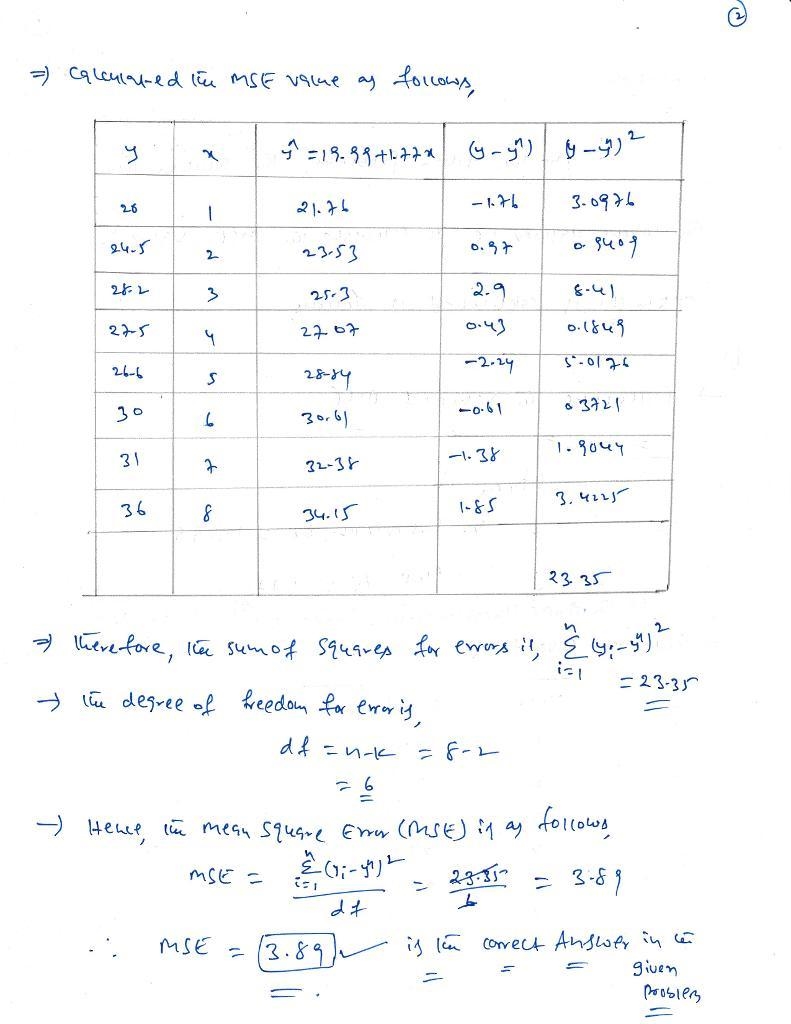 ②
⇒ Calculated the MSE value as follows,
y x ŷ = 19.99+1.77x (y - ŷ) (y - ŷ)²
20 1 21.76 -1.76 3.0976
24.5 2 23.53 0.97 0.9409
28.2 3 25.3 2.9 8.41
27.5 4 27.07 0.43 0.1849
26.6 5 28.84 -2.24 5.0176
30 6 30.61 -0.61 0.3721
31 7 32.38 -1.38 1.9044
36 8 34.15 1.85 3.4225
23.35
⇒ Therefore, the sum of squares for errors is, Σ_{i=1}^{n} (yᵢ - ŷ)²
= 23.35
→ the degree of freedom for error is,
df = n-k = 8-2
= 6
→ Hence, the mean square Error (MSE) is as follows,
MSE = Σ_{i=1}^{n} (yᵢ - ŷ)² / df = 23.35 / 6 = 3.89
∴ MSE = 3.89 ✓ is the correct Answer in the
given
problem